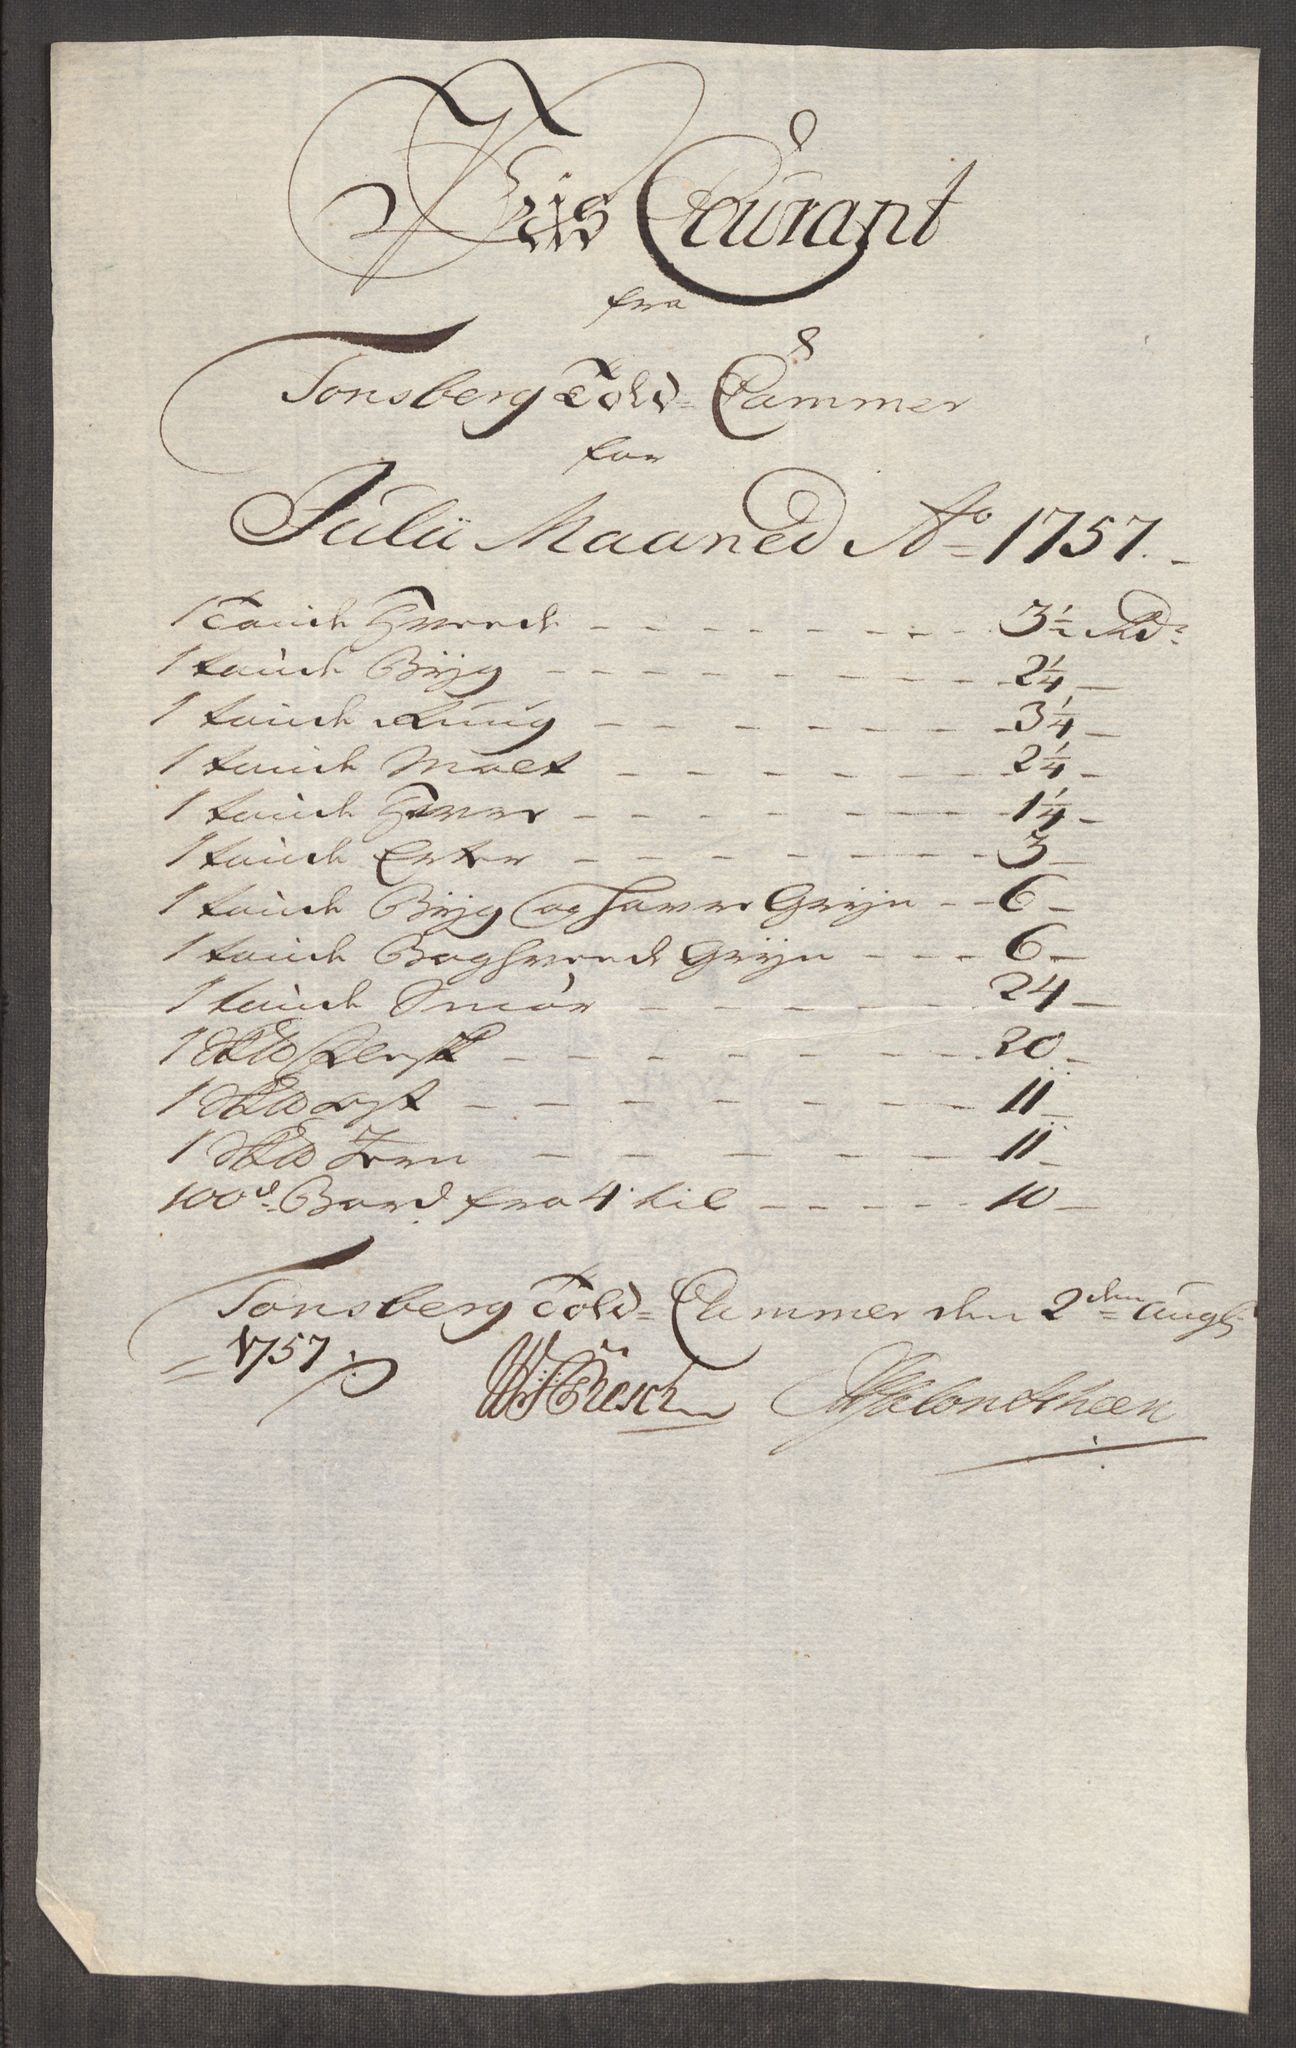 Priis Courant
fra
Tonsberg Told-Cammer
for
Julii Maaned Ao 1757.
1 Tønde Hvede - - - 3½ Rd
1 tønde Byg - - - 2¼ -
1 tønde Rug - - - 3¼ -
1 tønde Malt - - - 2¼ -
1 tønde Havre - - - 1¼ -
1 tønde Erter - - - 3 -
1 tønde Byg og Havre Gryn - - 6 -
1 tønde Boghvede Gryn - - - 6 -
1 tønde Smør - - - 24 -
1 Flesk - - - 20 -
1 ost - - - 11 -
1 Jern - - - 11 -
100d Bord fra 4 til - - - 10 -
Tonsberg Told-Cammer den 2den Augti
1757